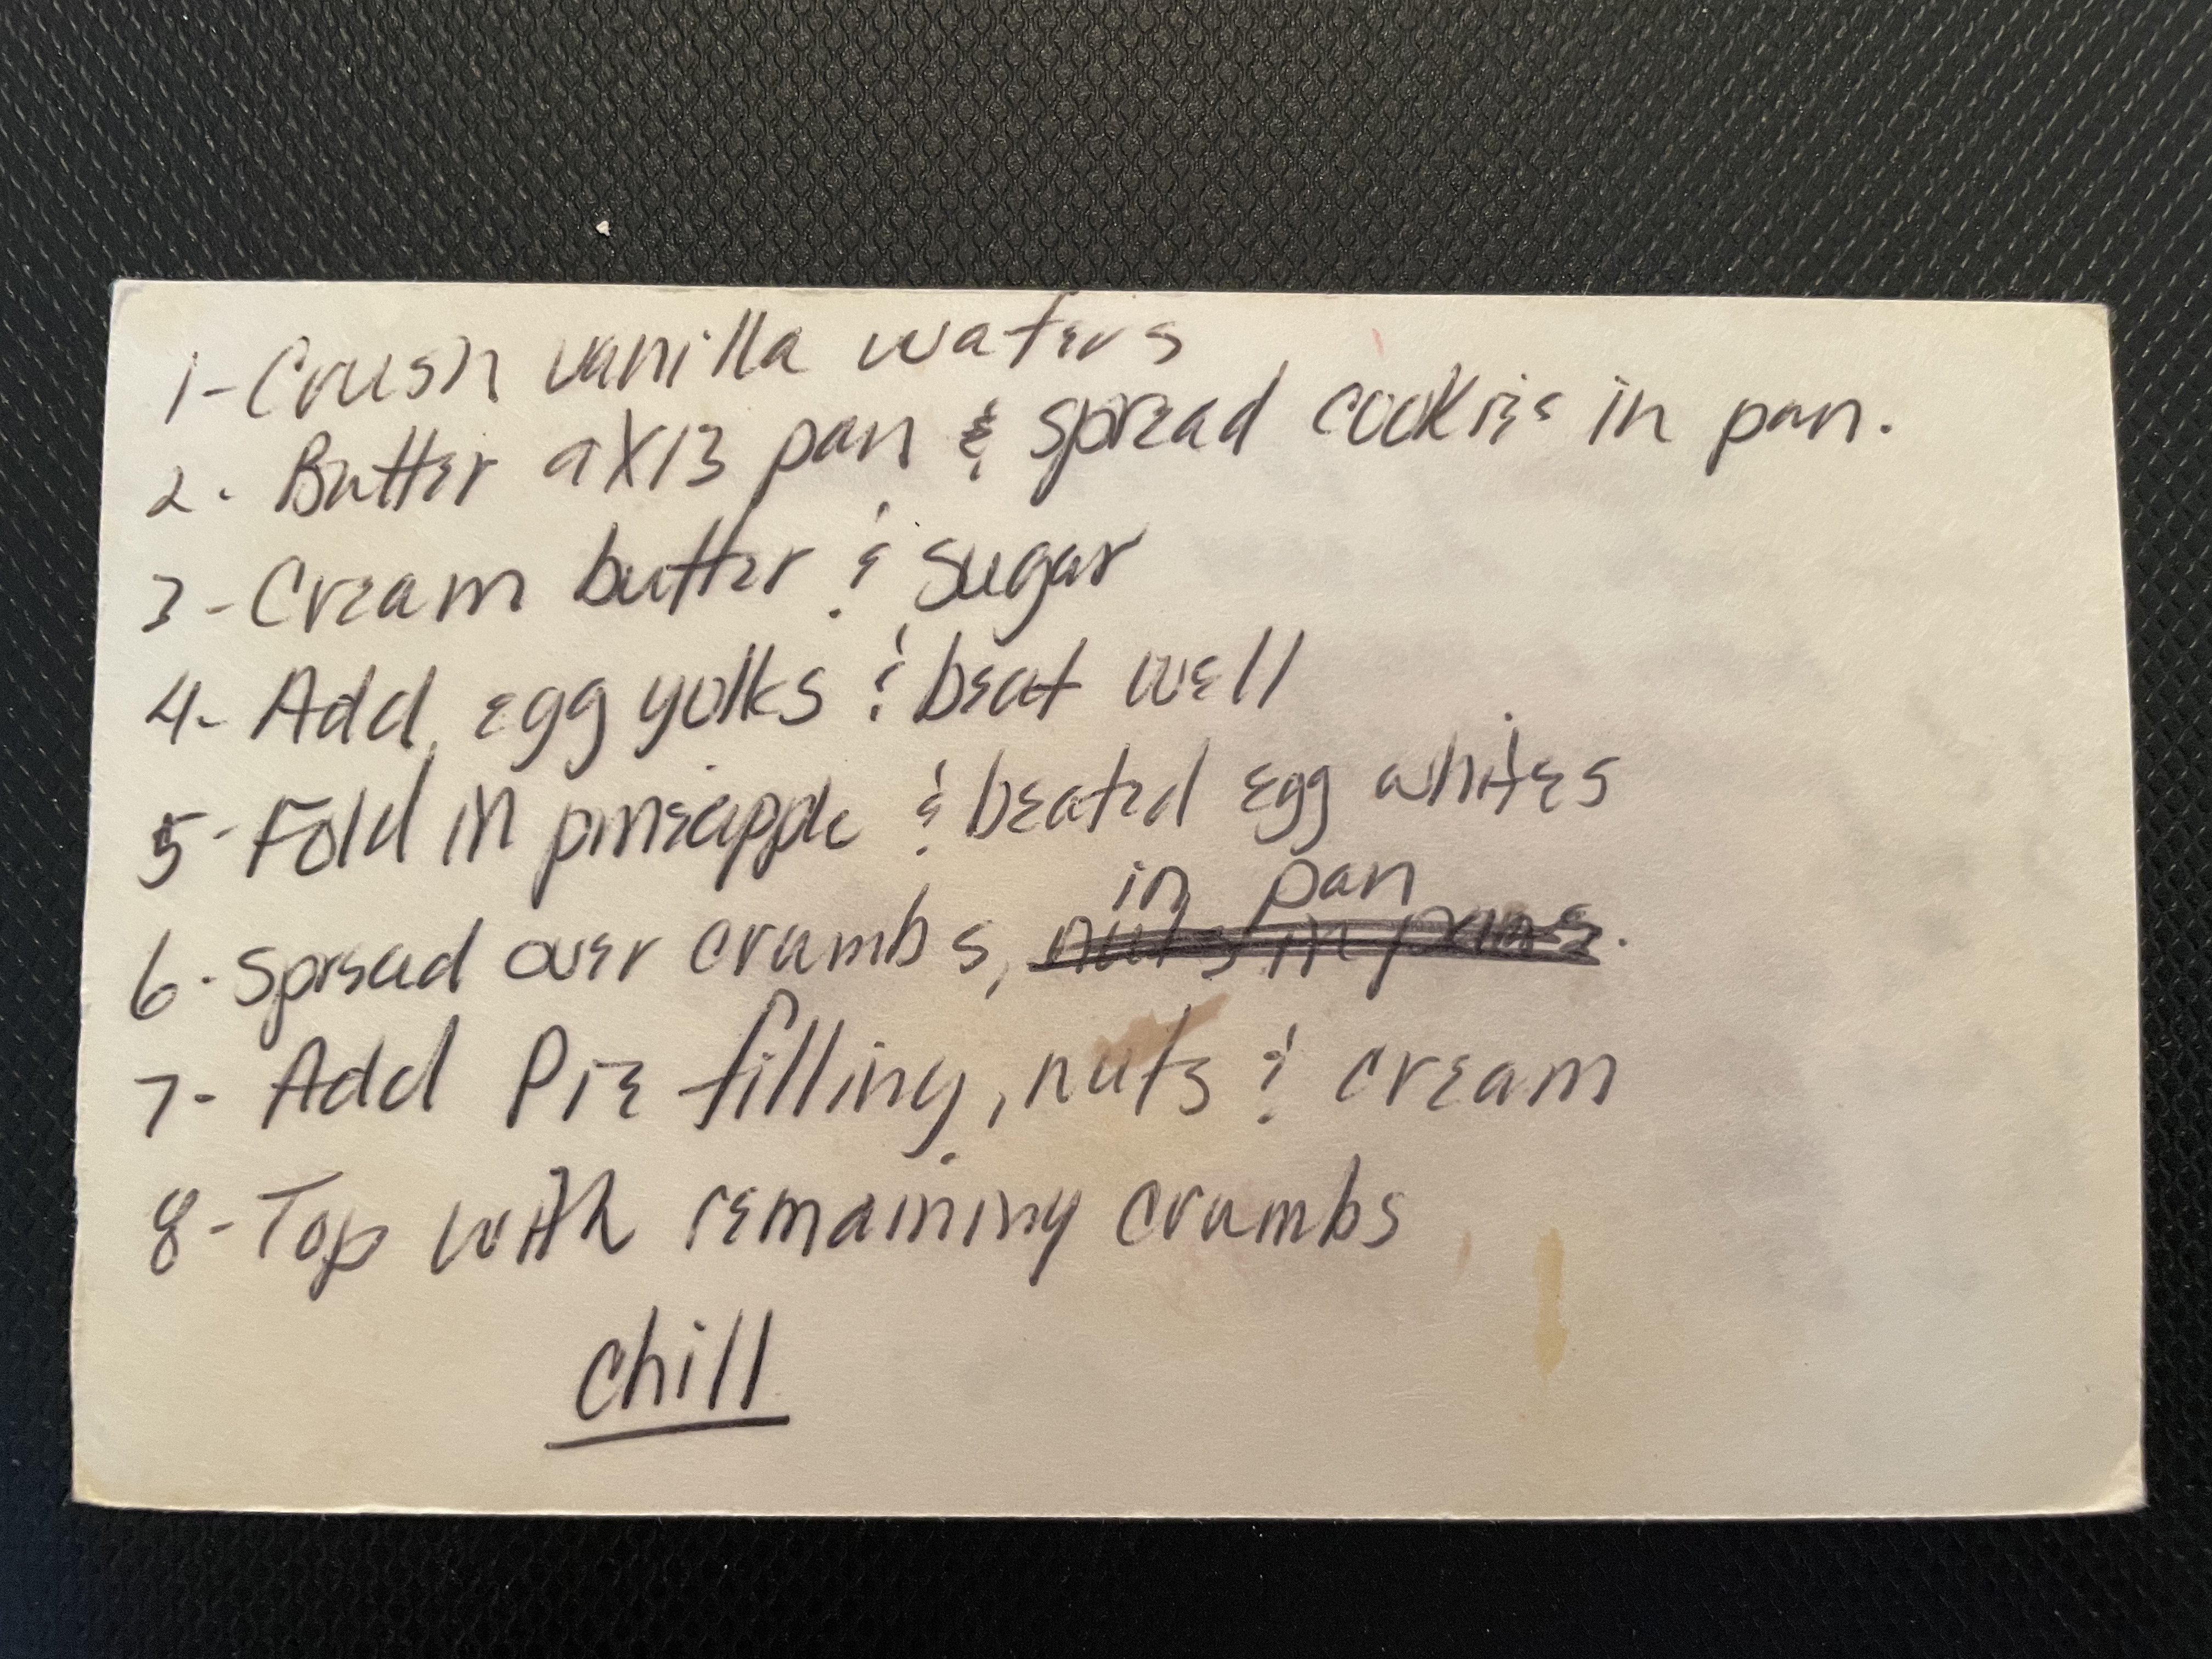 1- Crush vanilla wafers
2. Butter 9X13 pan & spread cookies in pan.
3- Cream butter & sugar
4- Add egg yolks & beat well
5- Fold in pineapple & beated egg whites
in pan
6. Spread over crumbs, nuts in pans.
7- Add Pie filling, nuts & cream
8- Top with remaining crumbs
chill